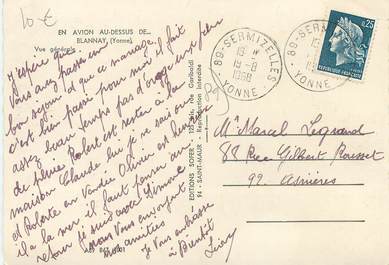 10 €
EN AVION AU-DESSUS DE...
BLANNAY (Yonne)
Vue générale
J'espère que
vous avez passé un
bon séjour et que ce mariage
c'est bien passé pour moi il fait
assez beau temps pas d'orage un peu
de pluie Robert est resté à la
maison Claude lui je ne sais ou
et Roberte en Vendée Olivier est heureux
il a la mer il faut penser au
retour je suis avec Simone
nous vous envoyons
nos amitiés
Je vous embrasse
à Bientôt
EDITIONS SOFER - 125 bis, rue Garibaldi
94 - SAINT-MAUR - Reproduction Interdite
89 - SERMIZELLES
19 - 8
1968
YONNE
89 - SERMIZELLES
1968
YONNE
0,25
REPUBLIQUE FRANÇAISE
POSTES
(89)
Me Marcel Legrand
88 Rue Gilbert Rousset
92. Asnières